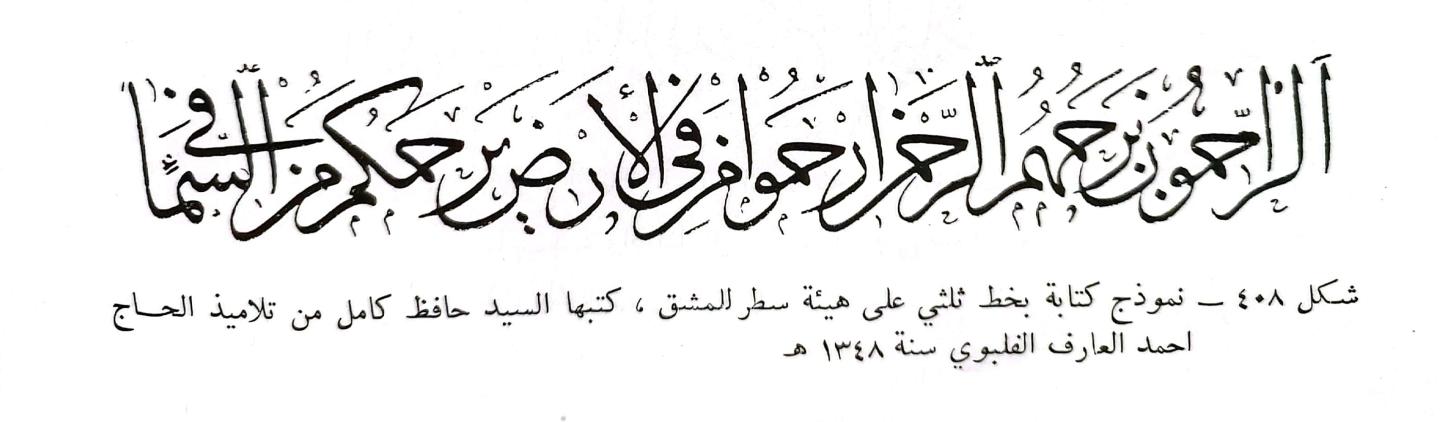 الراحمون يرحمهم الرحمن ارحموا من في الأرض يرحمكم من في السماء
شكل ٤٠٨ – نموذج كتابة بخط ثلثي على هيئة سطر للمشق ، كتبها السيد حافظ كامل من تلاميذ الحاج
احمد العارف الفلبوي سنة ١٣٤٨ هـ